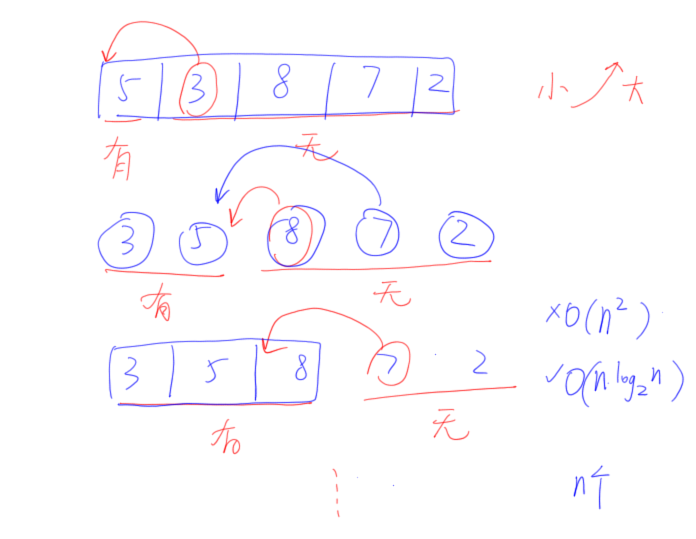 5 3 8 7 2 小 大
有 无
3 5 8 7 2
有 无
×O(n²)
3 5 8 7 2 ✓O(n·log₂n)
有 无
n个